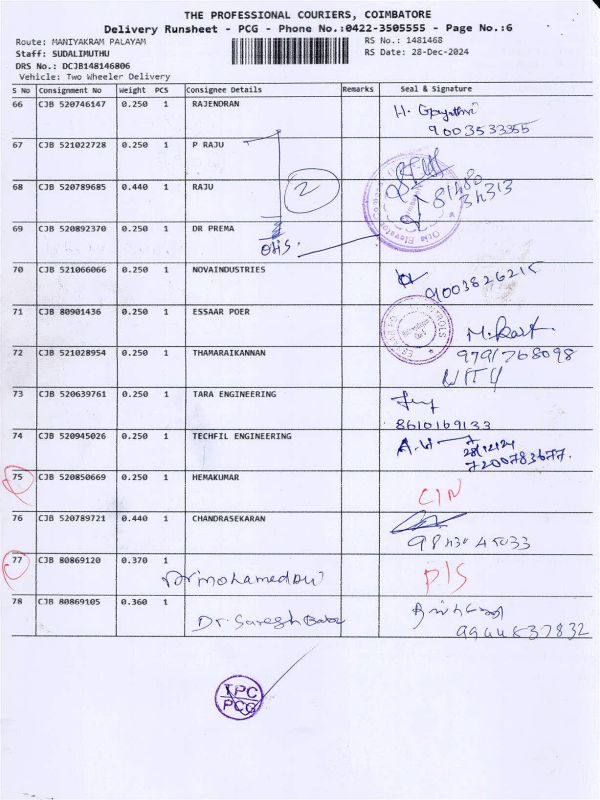 THE PROFESSIONAL COURIERS, COIMBATORE
Delivery Runsheet - PCG - Phone No.:0422-3505555 - Page No.:6
Route: MANIYAKRAM PALAYAM RS No.: 1481468
Staff: SUDALIMUTHU RS Date: 28-Dec-2024
DRS No.: DCJB148146806
Vehicle: Two Wheeler Delivery
S No Consignment No Weight PCS Consignee Details Remarks Seal & Signature
66 CJB 520746147 0.250 1 RAJENDRAN
9003533355
67 CJB 521022728 0.250 1 P RAJU
68 CJB 520789685 0.440 1 RAJU 2
69 CJB 520892370 0.250 1 DR PREMA
70 CJB 521066066 0.250 1 NOVAINDUSTRIES
9003826215
71 CJB 80901436 0.250 1 ESSAAR POER
72 CJB 521028954 0.250 1 THAMARAIKANNAN
9791768098
73 CJB 520639761 0.250 1 TARA ENGINEERING
8610169133
74 CJB 520945026 0.250 1 TECHFIL ENGINEERING
28/12/24
7200783677.
75 CJB 520850669 0.250 1 HEMAKUMAR
CIN
76 CJB 520789721 0.440 1 CHANDRASEKARAN
77 CJB 80869120 0.370 1
P/S
78 CJB 80869105 0.360 1
Dr. Suresh Babu
9944837832
TPC
PCG